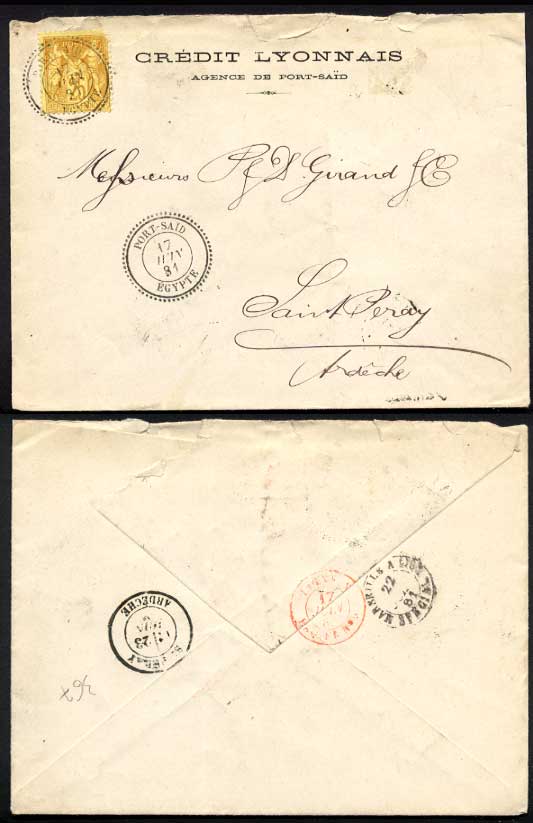 CRÉDIT LYONNAIS
AGENCE DE PORT-SAÏD
Messieurs Giraud & C
PORT-SAÏD
17
JUIN
81
ÉGYPTE
Saint Péray
Ardèche
ARDÈCHE
23
17
MARSEILLE A LYON
22
81